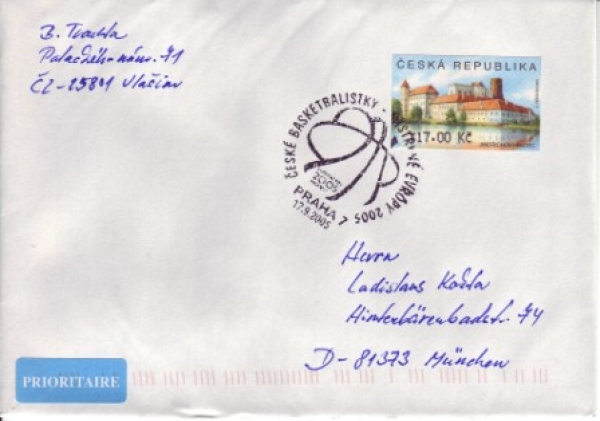 B. Trachta
Palackého nám. 71
CZ-25801 Vlašim
ČESKÁ REPUBLIKA
17.00 Kč
ČESKÉ BASKETBALISTKY · MISTRYNĚ EVROPY 2005
2005
PRAHA 7
17.9.2005
Herrn
Ladislaus Košta
Hinterbärenbadstr. 74
D-81373 München
PRIORITAIRE